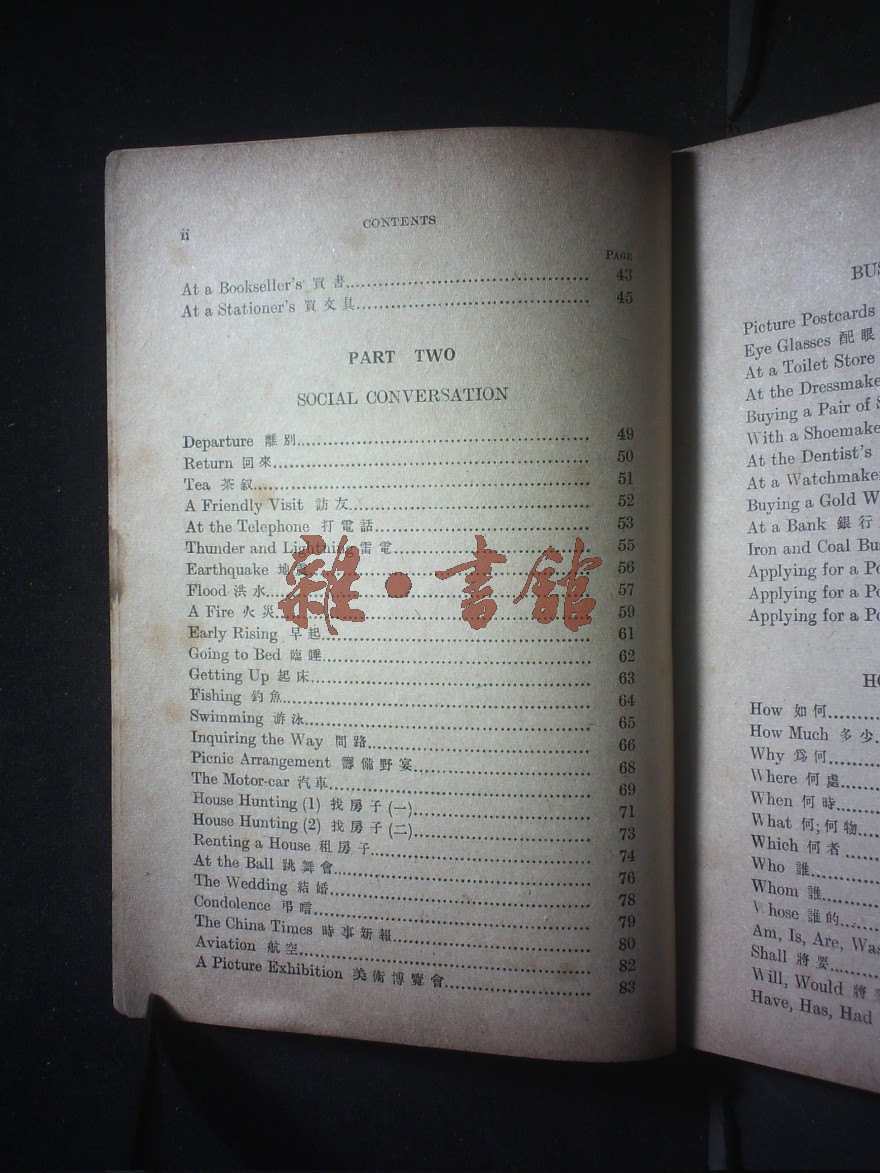 ii
CONTENTS
PAGE
At a Bookseller's 買書 43
At a Stationer's 買文具 45
PART TWO
SOCIAL CONVERSATION
Departure 離別 49
Return 回來 50
Tea 茶叙 51
A Friendly Visit 訪友 52
At the Telephone 打電話 53
Thunder and Lightning 雷電 55
Earthquake 地震 56
Flood 洪水 57
A Fire 火災 59
Early Rising 早起 61
Going to Bed 臨睡 62
Getting Up 起床 63
Fishing 釣魚 64
Swimming 游泳 65
Inquiring the Way 問路 66
Picnic Arrangement 籌備野宴 68
The Motor-car 汽車 69
House Hunting (1) 找房子(一) 71
House Hunting (2) 找房子(二) 73
Renting a House 租房子 74
At the Ball 跳舞會 76
The Wedding 結婚 78
Condolence 弔唁 79
The China Times 時事新報 80
Aviation 航空 82
A Picture Exhibition 美術博覽會 83
雜·書館
Picture Postcards
Eye Glasses 配眼
At a Toilet Store
At the
Buying a Pair of
With a
At the Dentist's
At a
Buying a Gold
At a Bank 銀行
Iron and Coal
Applying for a
Applying for a
Applying for a
How 如何
How Much 多少
Why 爲何
Where 何處
When 何時
What 何;何物
Which 何者
Who 誰
Whom 誰
Whose 誰的
Am, Is, Are,
Shall 將要
Will, Would 將
Have, Has, Had